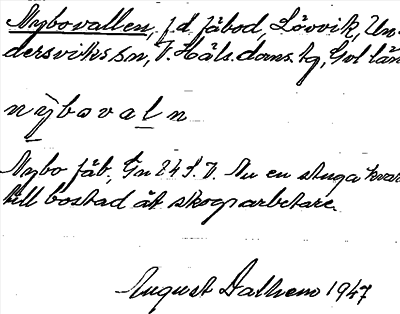 Nybovallen, f.d. fäbod, Lövvik, Un-
dersviks sn, V. Häls. doms. tg, Gvl län
nybovaln
Nybo fäb, Gn 24 S.V. Nu en stuga kvar
till bostad åt skogsarbetare.
August Dalhem 1947